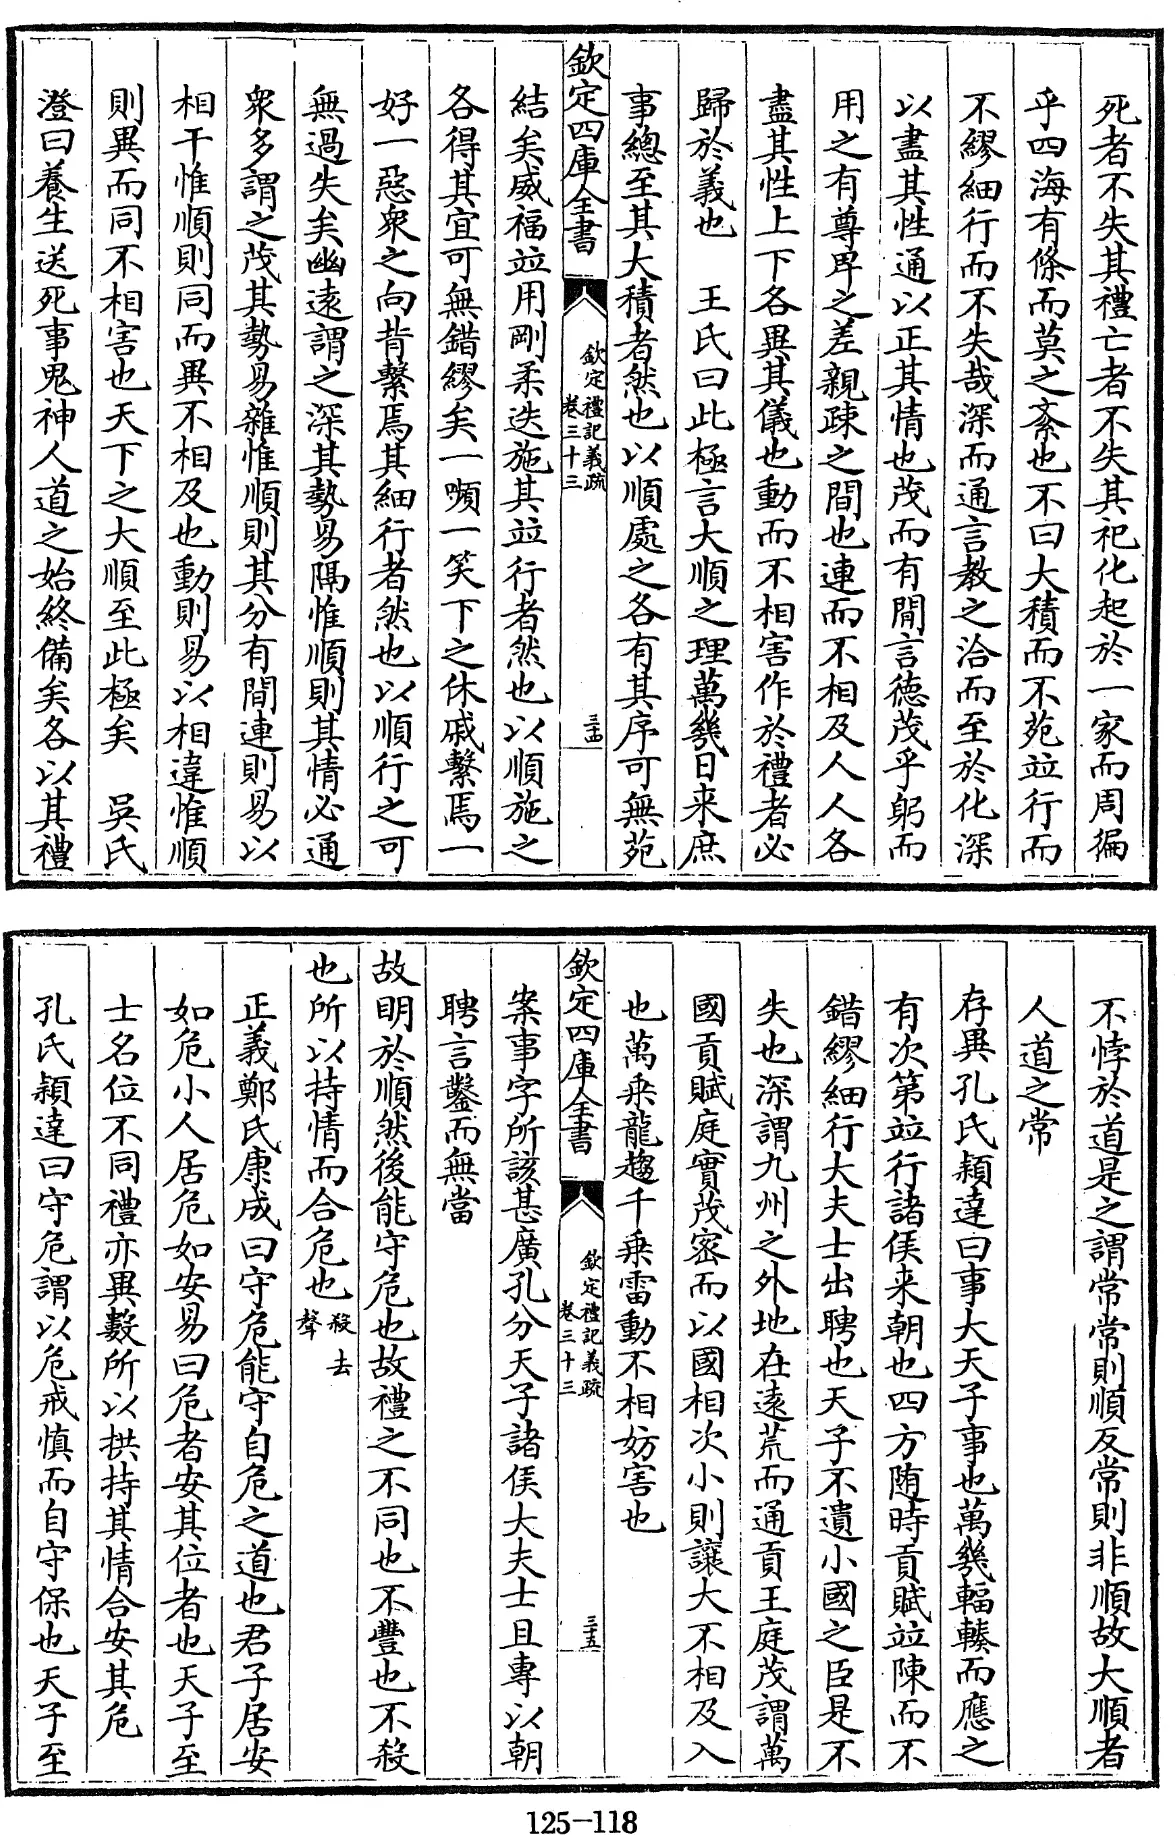 死者不失其禮亡者不失其祀化起於一家而周徧
乎四海有條而莫之紊也不曰大積而不苑竝行而
不繆細行而不失哉深而通言教之洽而至於化深
以盡其性通以正其情也茂而有間言德茂乎躬而
用之有尊卑之差親疎之間也連而不相及人人各
盡其性上下各異其儀也動而不相害作於禮者必
歸於義也　王氏曰此極言大順之理萬幾日来庶
事總至其大積者然也以順處之各有其序可無苑
欽定四庫全書
欽定禮記義疏
卷三十三
三十四
結矣威福竝用剛柔迭施其竝行者然也以順施之
各得其宜可無錯繆矣一嚬一笑下之休戚繫焉一
好一惡衆之向背繫焉其細行者然也以順行之可
無過失矣幽遠謂之深其勢易隔惟順則其情必通
衆多謂之茂其勢易雜惟順則其分有間連則易以
相干惟順則同而異不相及也動則易以相違惟順
則異而同不相害也天下之大順至此極矣　吳氏
澄曰養生送死事鬼神人道之始終備矣各以其禮
不悖於道是之謂常常則順反常則非順故大順者
人道之常
存異孔氏穎達曰事大天子事也萬幾輻輳而應之
有次第竝行諸侯来朝也四方随時貢賦竝陳而不
錯繆細行大夫士出聘也天子不遺小國之臣是不
失也深謂九州之外地在遠荒而通貢王庭茂謂萬
國貢賦庭實茂密而以國相次小則讓大不相及入
也萬乗龍趨千乗雷動不相妨害也
欽定四庫全書
欽定禮記義疏
卷三十三
三十五
案事字所該甚廣孔分天子諸侯大夫士且專以朝
聘言鑿而無當
故明於順然後能守危也故禮之不同也不豐也不殺
也所以持情而合危也殺去
聲
正義鄭氏康成曰守危能守自危之道也君子居安
如危小人居危如安易曰危者安其位者也天子至
士名位不同禮亦異數所以拱持其情合安其危
孔氏穎達曰守危謂以危戒慎而自守保也天子至
125-118